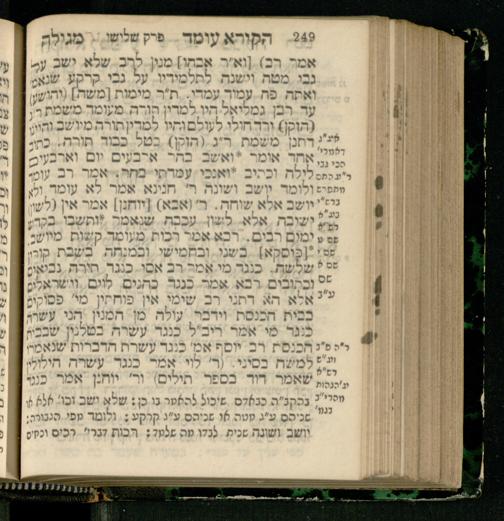 249 הקורא עומד פרק שלישי מגילה
אמר רב) [וא״ר אבהו] מנין לרב שלא ישב על
גבי מטה וישנה לתלמידיו על גבי קרקע שנאמ׳
ואתה פה עמוד עמדי. ת״ר מימות [משה] (יהושע)
עד רבן גמליאל היו למדין תורה מעומד משמת ר״ג
(הזקן) ירד חולי לעולם והיו למדין תורה מיושב והיינו
דתנן משמת ר״ג (הזקן) בטל כבוד תורה.. כתוב
אחד אומר *ואשב בהר ארבעים יום וארבעים
לילה וכתיב *ואנכי עמדתי בהר. אמר רב עומד
ולומד יושב ושונה ר׳ חנינא אמר לא עומד ולא
יושב אלא שוחה. ר׳ (אבא) [יוחנן] אמר אין (לשון)
ישיבה אלא לשון עכבה שנאמר *ותשבו בקדש
ימים רבים. רבא אמר רכות מעומד קשות מיושב.
*[פיסקא] בשני ובחמישי ובמנחה בשבת קורין
שלשה. כנגד מי אמר רב אסי כנגד תורה נביאים
וכתובים רבא אמר כנגד כהנים לוים וישראלים
אלא הא דתני רב שימי אין פוחתין מי׳ פסוקים
בבית הכנסת וידבר עולה מן המנין הני עשרה
כנגד מי אמר ריב״ל כנגד עשרה בטלנין שבבית
הכנסת רב יוסף אמ׳ כנגד עשרת הדברות שנאמרו
למשה בסיני. (ר׳ לוי אמר כנגד עשרה הילולין
שאמר דוד בספר תילים) ור׳ יוחנן אמר כנגד
בהקב״ה כבאדם. שיכול להאמר בו כן: שלא ישב וכו׳ אלא או
שניהם ע״ג מטה או שניהם ע״ג קרקע: ולומד מפי הגבורה:
יושב ושונה לבדו מה שלמד: רכות דברי׳ רכים ונוחים